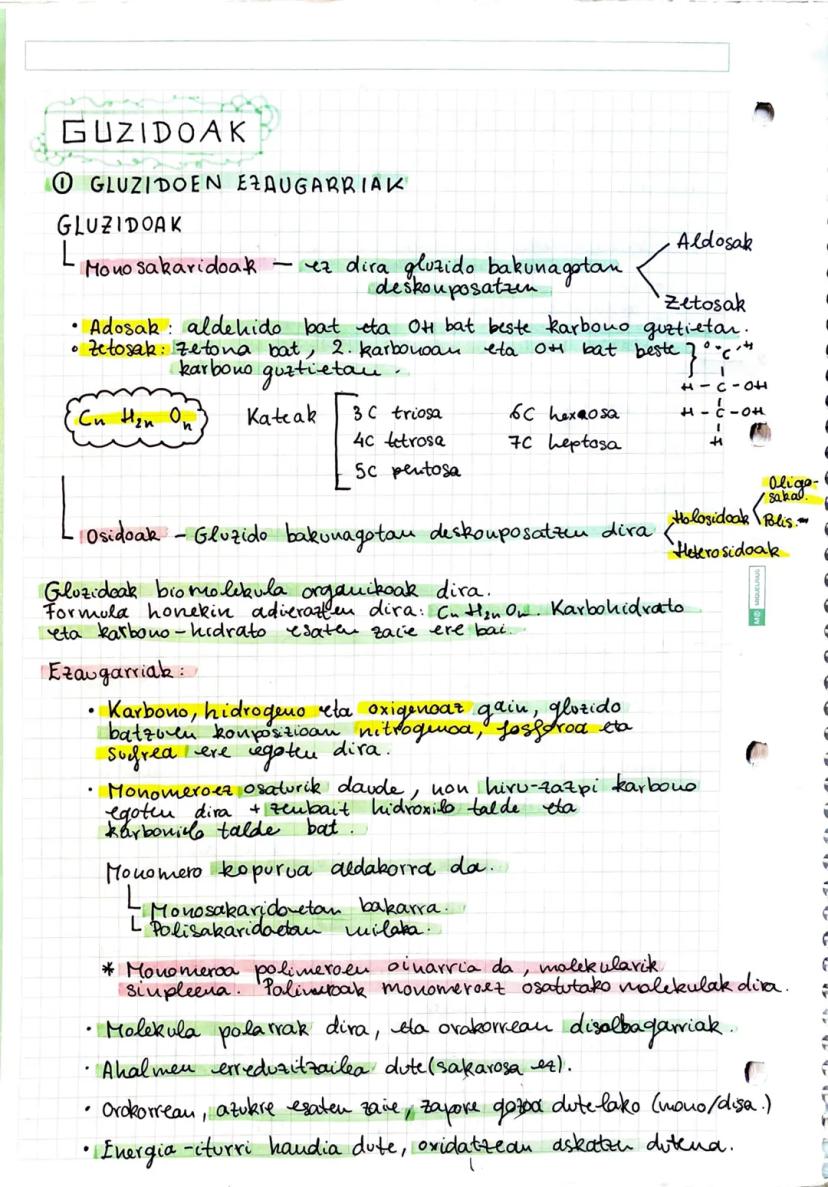 GUZIDOAK
① GLUZIDOEN EZAUGARRIAK
GLUZIDOAK
Monosakaridoak — ez dira gluzido bakunagotan
deskonposatzen
Aldosak
Zetosak
• Adosak: aldehido bat eta OH bat beste karbono guztietan.
• Zetosak: Zetona bat, 2. karbonoan eta OH bat beste
karbono guztietan.
O C H
H - C - OH
H - C - OH
H
Cn H2n On
Kateak
3C triosa
4C tetrosa
5C pentosa
6C hexaosa
7C heptosa
Osidoak - Gluzido bakunagotan deskonposatzen dira
Holosidoak
Oligo-
sakar.
Polis.
Heterosidoak
Gluzidoak biomolekula organikoak dira.
Formula honekin adierazten dira: Cn H2n On. Karbohidrato
eta karbono-hidrato esaten zaie ere bai.
MIQUELRIUS
Ezaugarriak:
• Karbono, hidrogeno eta oxigenoaz gain, gluzido
batzuen konposizioan nitrogenoa, fosforoa eta
sufrea ere egoten dira.
• Monomeroez osaturik daude, non hiru-zazpi karbono
egoten dira + zenbait hidroxilo talde eta
karbonilo talde bat.
Monomero kopurua aldakorra da.
Monosakaridoetan bakarra.
Polisakaridoetan milaka.
* Monomeroa polimeroen oinarria da, molekularik
sinpleena. Polimeroak monomeroez osatutako molekulak dira.
• Molekula polarrak dira, eta orokorrean disolbagarriak.
• Ahalmen erreduzitzailea dute (sakarosa ez).
• Orokorrean, azukre esaten zaie, zapore gozoa dutelako (mono/disa.)
• Energia-iturri handia dute, oxidatzean askatzen dutena.